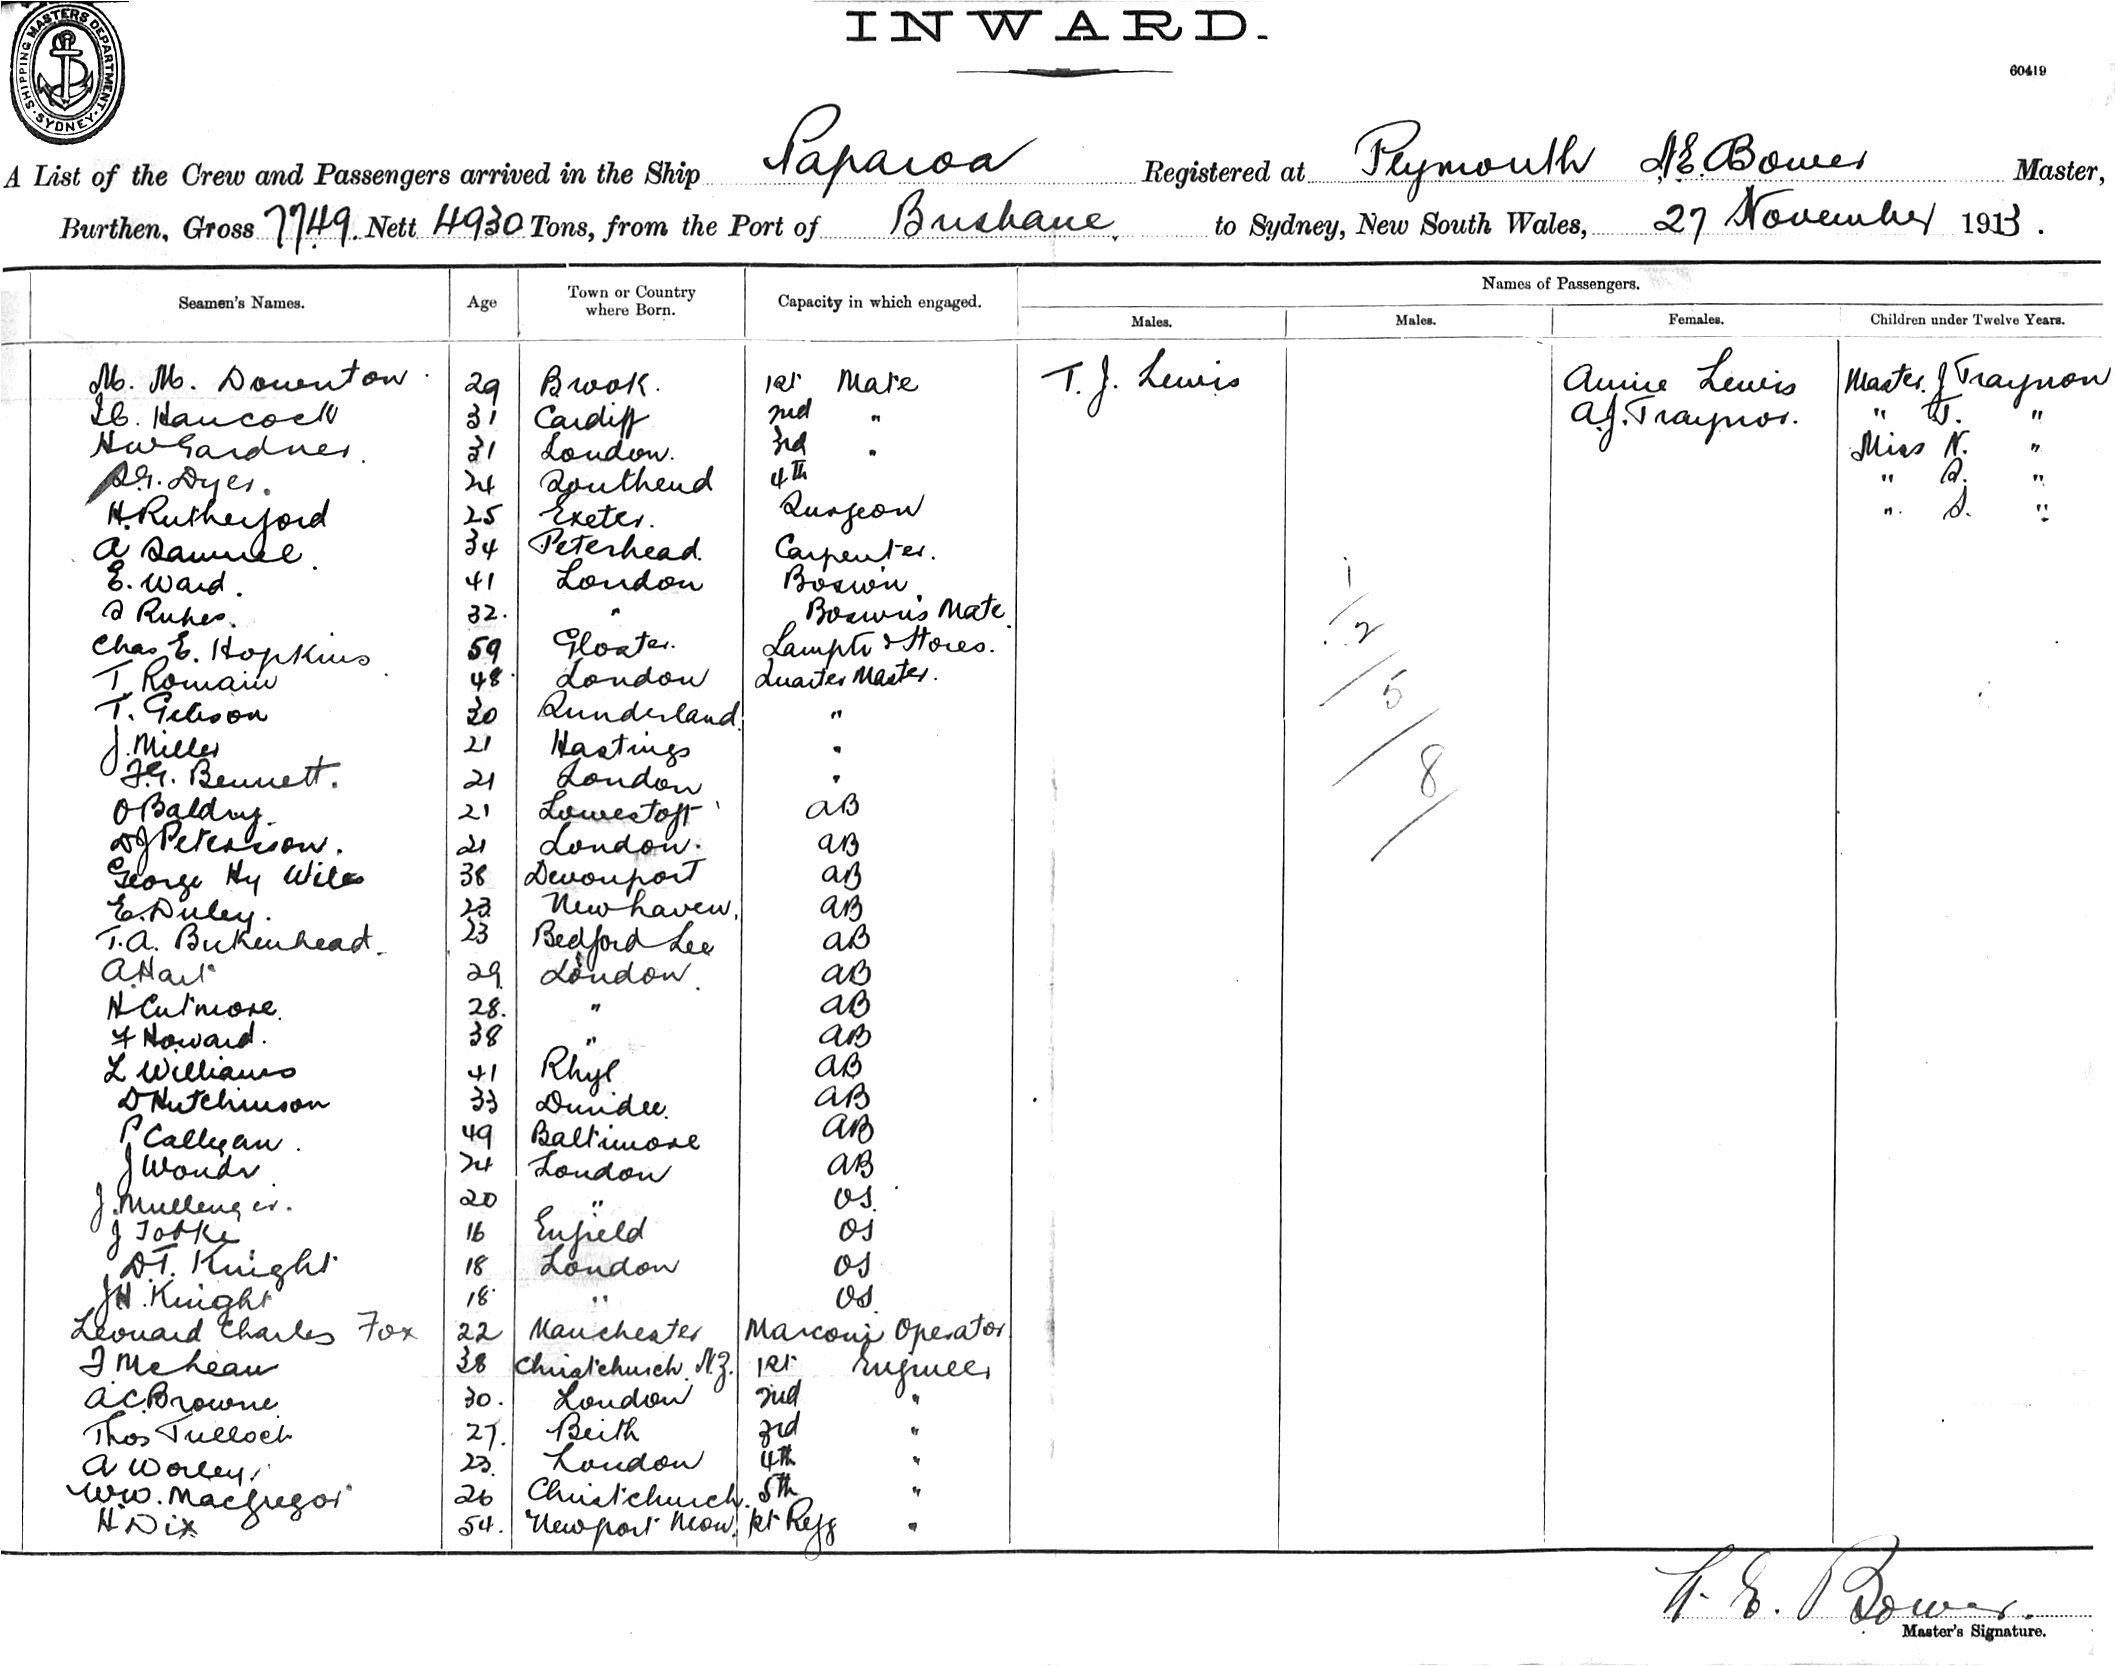 SHIPPING MASTERS DEPARTMENT
SYDNEY
INWARD.
60419
A List of the Crew and Passengers arrived in the Ship Paparoa Registered at Plymouth Bower Master,
Burthen, Gross 7749 Nett 4930 Tons, from the Port of Brisbane to Sydney, New South Wales, 27 November 1913.
Seamen's Names. Age Town or Country where Born. Capacity in which engaged. Names of Passengers.
Males. Males. Females. Children under Twelve Years.
M. M. Downton 29 Brook. 1st Mate T. J. Lewis Annie Lewis Master J Traynor
Hancock 31 Cardiff 2nd " A.J. Traynor. " T. "
HW Gardner. 31 London. 3rd " Miss N. "
Dyer. 24 Southend 4th " "
H. Rutherford 25 Exeter. Surgeon " S. "
A Samuel. 34 Peterhead. Carpenter.
E. Ward. 41 London Boswn
32. " Boswn's Mate
Chas E. Hopkins 59 Gloster. Lamptr & Stores.
T. Romain 48 London Quarter Master.
T. Gibson 30 Sunderland "
J. Miller 21 Hastings "
Bennett. 21 London "
O Baldry. 21 Lowestoft AB
DJ Peterson. 21 London. AB
George Hy Wills 38 Devonport AB
E. Duley. 23 Newhaven. AB
T.A. Birkenhead. 23 Bedford Lee AB
A. Hart 29 London. AB
H Cutmore. 28. " AB
F Howard. 38 " AB
L Williams 41 Rhyl AB
D Hutchinson 33 Dundee. AB
P Calligan. 49 Baltimore AB
J 24 London AB
J. Mullenger. 20 " OS.
J 16 Enfield OS
D.T. Knight 18 London OS
JH. Knight 18 " OS.
Leonard Charles Fox 22 Manchester Marconi Operator
McLean 38 Christchurch. N.Z. 1st Engineer
A.C. Browne 30. London 2nd "
Thos Tulloch 27. Beith 3rd "
A Worley. 23. London 4th "
W.W. MacGregor 26 Christchurch. 5th "
H Dix 54. Newport Mon. 1st Refg "
1
2
5
8
Bower.
Master's Signature.